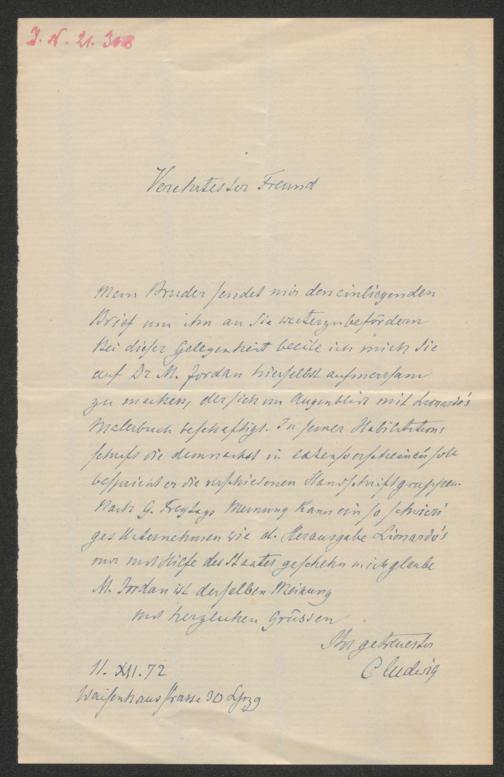 J. N. 21.308
Verehrtester Freund
Mein Bruder sendet mir den einliegenden
Brief um ihn an Sie weiterzubefördern
Bei dieser Gelegenheit beeile ich mich Sie
auf Dr. M. Jordan hierselbst aufmerksam
zu machen, der sich im Augenblick mit Lionardo's
Malerbuch beschäftigt. In seiner Habilitations
schrift die demnächst in erscheinen soll
bespricht er die verschiedenen Handschriftgruppen.
Nach G. Freytags Meinung kann ein so schwieri
ges Unternehmen wie d. Herausgabe Lionardo's
nur mit Hilfe des Staates geschehn u. ich glaube
M. Jordan ist derselben Meinung
Mit herzlichen Grüssen
Ihr getreuester
C Ludwig
11. XII. 72
Waisenhausstrasse 30 Lpzg